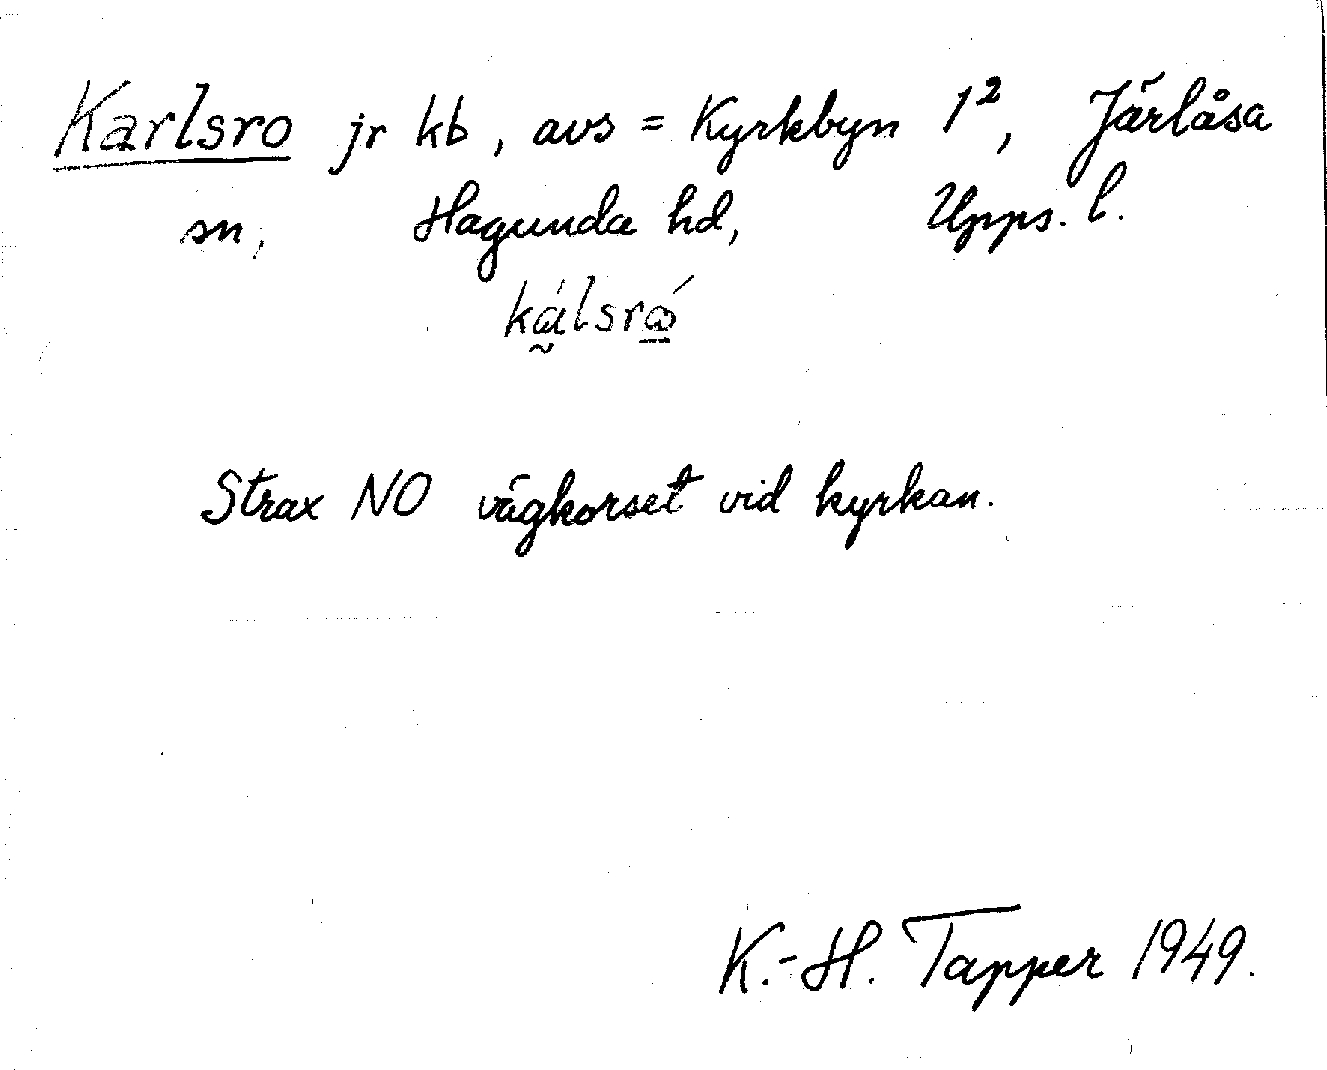 Karlsro jr kb, avs = Kyrkbyn 1², Järlåsa
sn, Hagunda hd, Upps. l.
Strax NO vägkorset vid kyrkan.
K.-H. Tapper 1949.